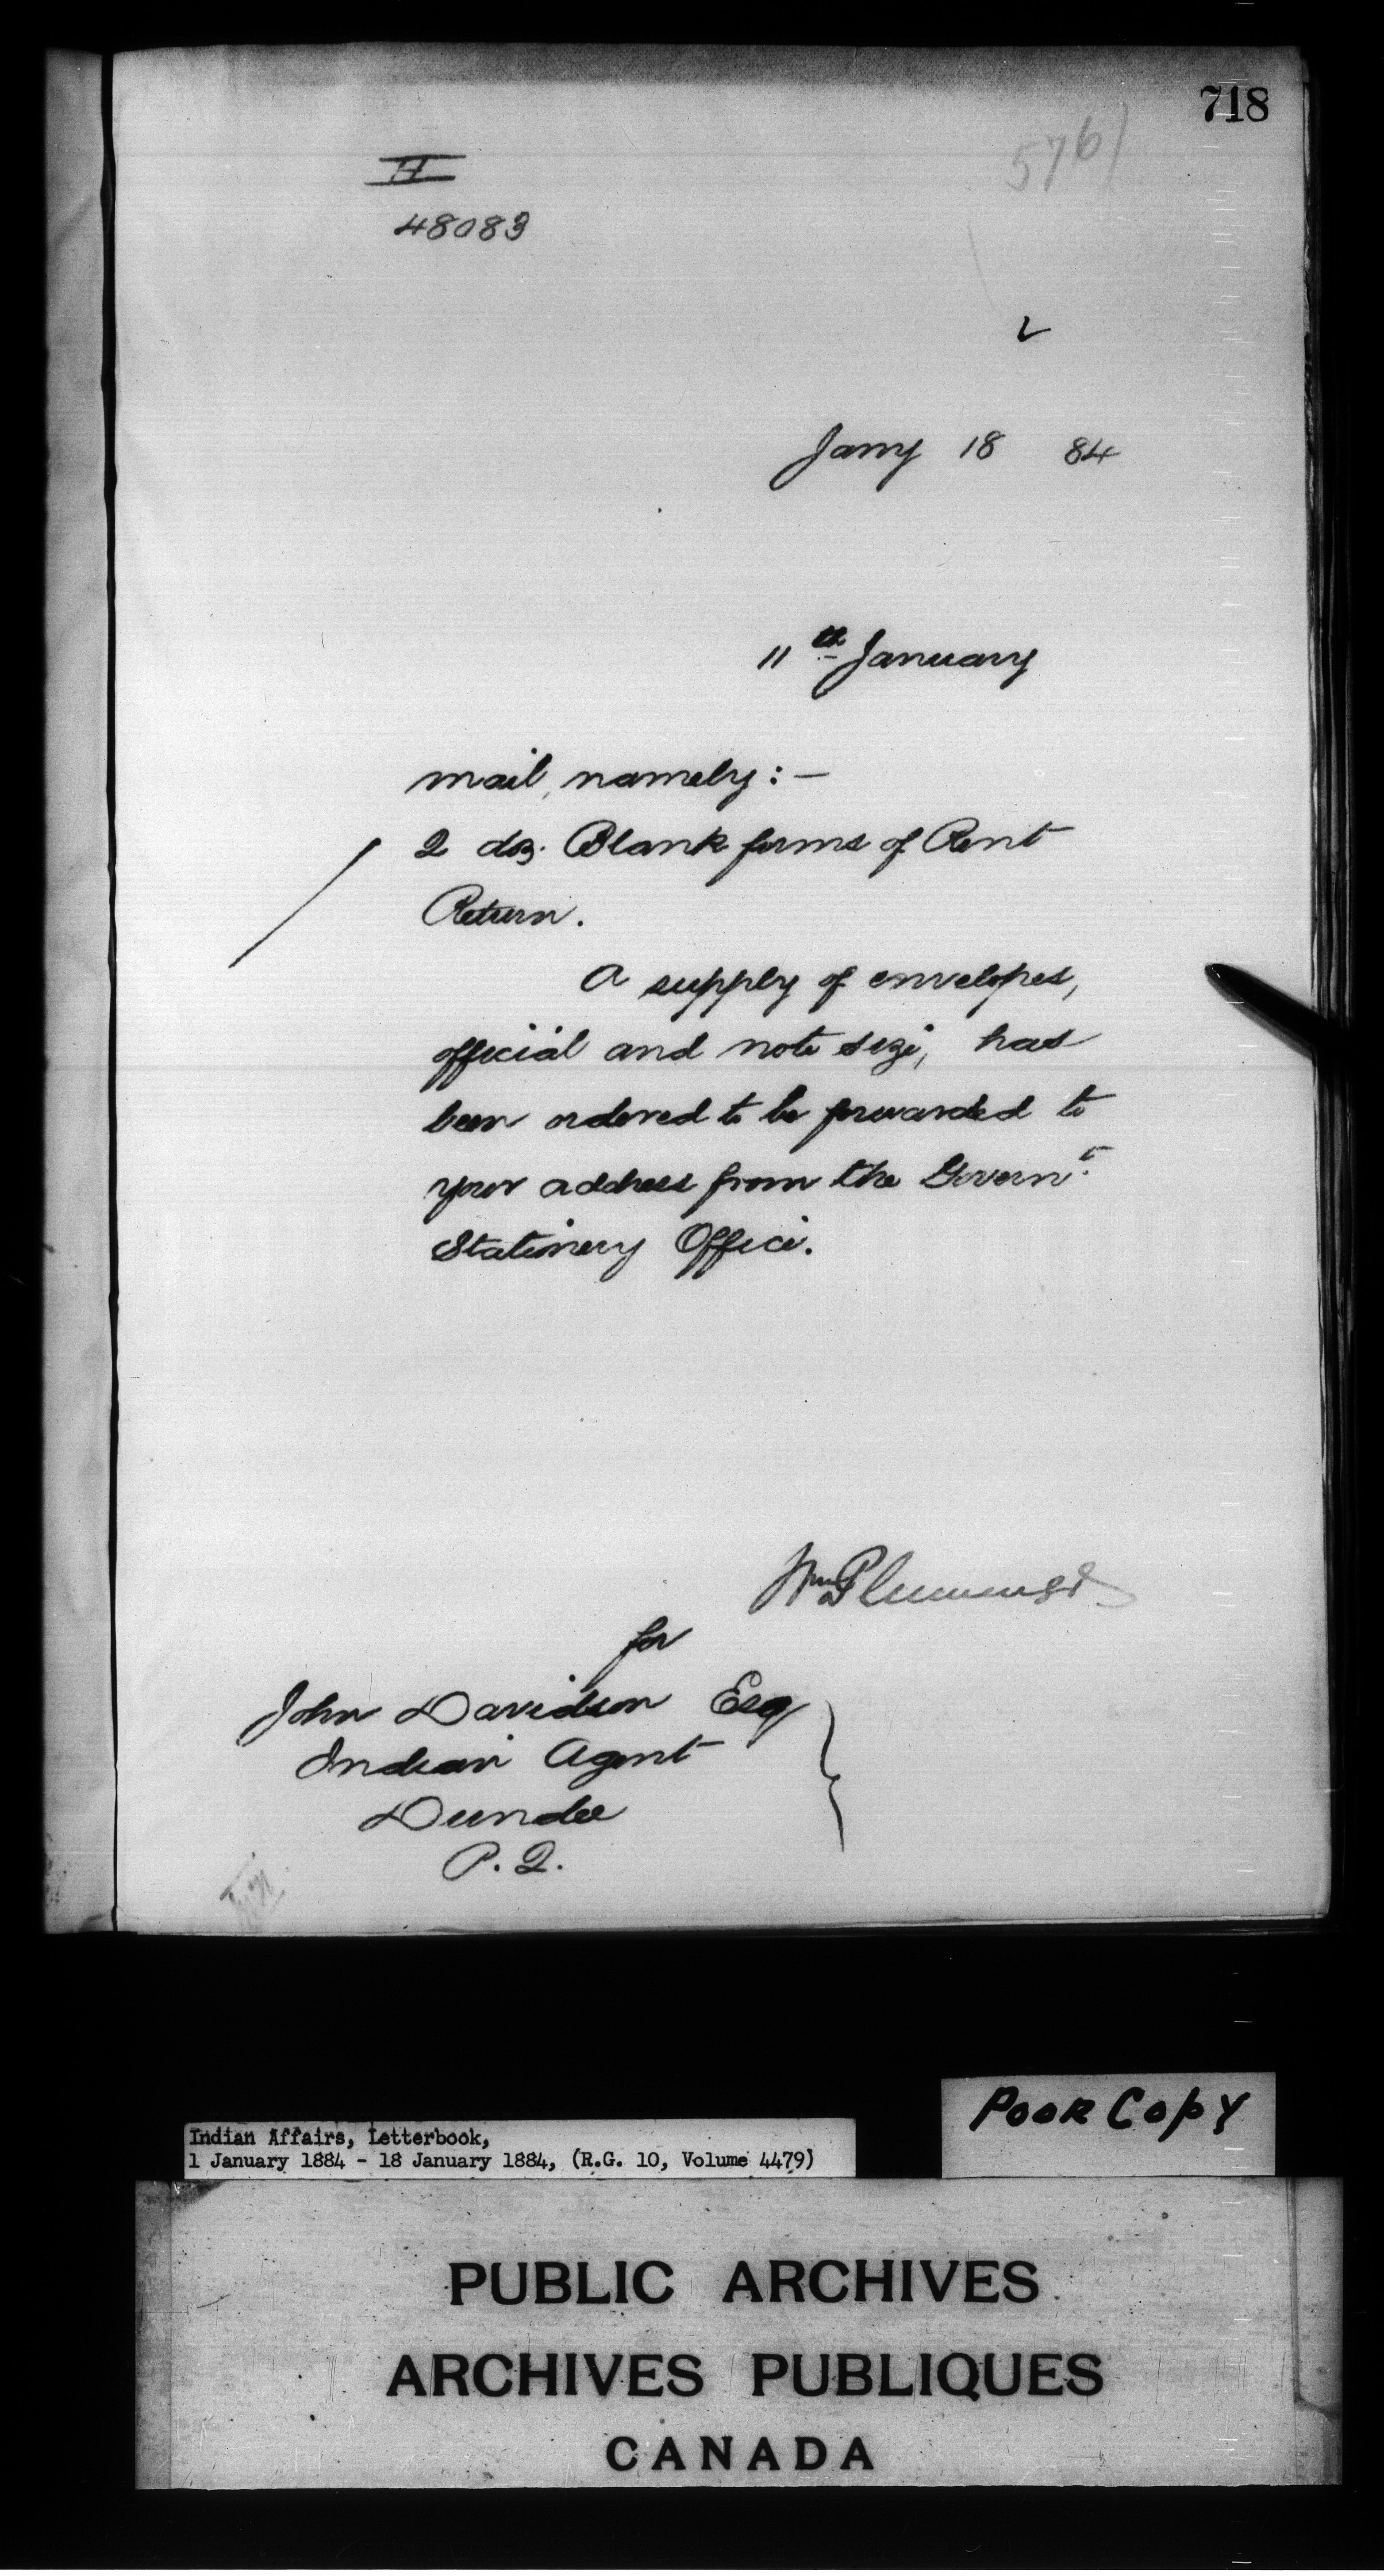 718
576
II
48083
Jany 18 84
11th January
mail, namely:—
2 doz. Blank forms of Rent
Return.
A supply of envelopes,
official and note size, has
been ordered to be forwarded to
your address from the Governt.
Stationery Office.
Wm Plummer
for
John Davidson Esq
Indian Agent
Dundee
P.Q.
Poor Copy
Indian Affairs, Letterbook,
1 January 1884 - 18 January 1884, (R.G. 10, Volume 4479)
PUBLIC ARCHIVES
ARCHIVES PUBLIQUES
CANADA